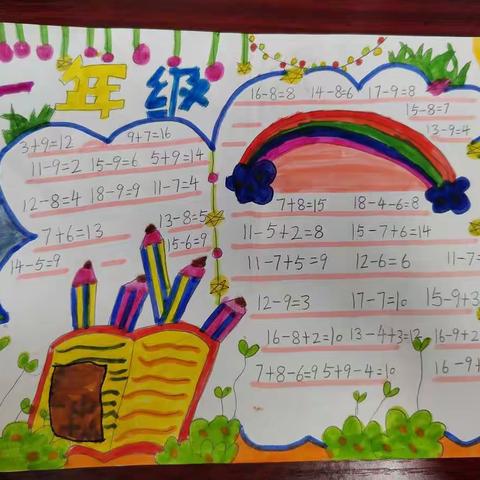 一年级
3+9=12 9+7=16
11-9=2 15-9=6 5+9=14
12-8=4 18-9=9 11-7=4
7+6=13 13-8=5
14-5=9 15-6=9
16-8=8 14-8=6 17-9=8
15-8=7
13-9=4
7+8=15 18-4-6=8
11-5+2=8 15-7+6=14
11-7+5=9 12-6=6 11-7=
12-9=3 17-7=10 15-9+3
16-8+2=10 13-4+3=12 16-9+2
7+8-6=9 5+9-4=10 16-9+